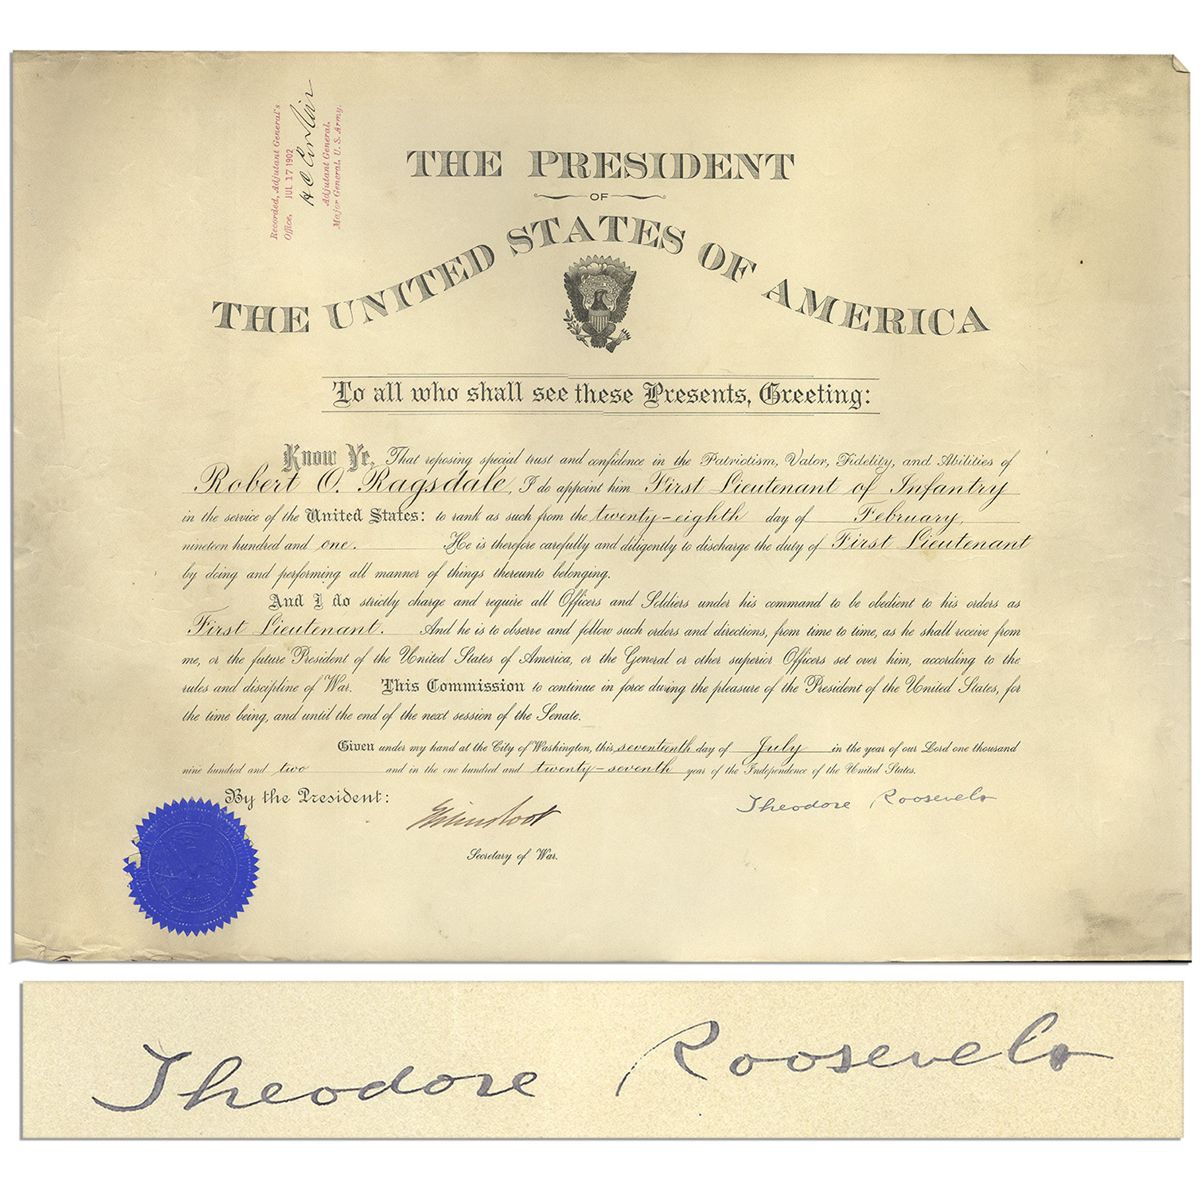 Recorded, Adjutant General's
Office, JUL 17 1902
H C Corbin
Adjutant General,
Major General, U. S. Army.
THE PRESIDENT
OF
THE UNITED STATES OF AMERICA
To all who shall see these Presents, Greeting:
Know Ye, That reposing special trust and confidence in the Patriotism, Valor, Fidelity, and Abilities of
Robert O. Ragsdale, I do appoint him First Lieutenant of Infantry
in the service of the United States: to rank as such from the twenty-eighth day of February,
nineteen hundred and one. He is therefore carefully and diligently to discharge the duty of First Lieutenant
by doing and performing all manner of things thereunto belonging.
And I do strictly charge and require all Officers and Soldiers under his command to be obedient to his orders as
First Lieutenant. And he is to observe and follow such orders and directions, from time to time, as he shall receive from
me, or the future President of the United States of America, or the General or other superior Officers set over him, according to the
rules and discipline of War. This Commission to continue in force during the pleasure of the President of the United States, for
the time being, and until the end of the next session of the Senate.
Given under my hand at the City of Washington, this seventeenth day of July in the year of our Lord one thousand
nine hundred and two and in the one hundred and twenty-seventh year of the Independence of the United States.
By the President:
Theodore Roosevelt
Elihu Root
Secretary of War.
Theodore Roosevelt